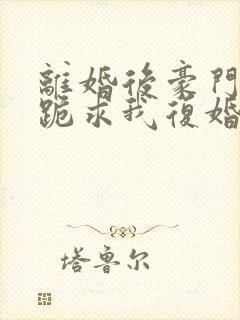 離婚後豪門
跪求我復婚
塔鲁尔